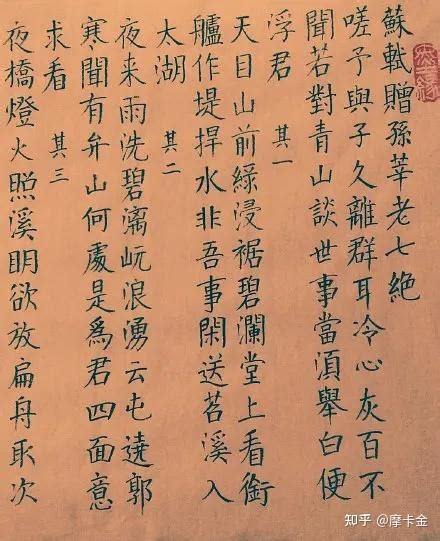 蘇軾贈孫莘老七絶
嗟予與子久離群耳冷心灰百不
聞若對青山談世事當湏舉白便
浮君 其一
天目山前緑浸裾碧瀾堂上看銜
艫作堤捍水非吾事閑送苕溪入
太湖 其二
夜来雨洗碧漓岏浪湧云屯遶郭
寒聞有弁山何處是爲君四面意
求看 其三
夜橋燈火照溪眀欲放扁舟取次
知乎 @摩卡金